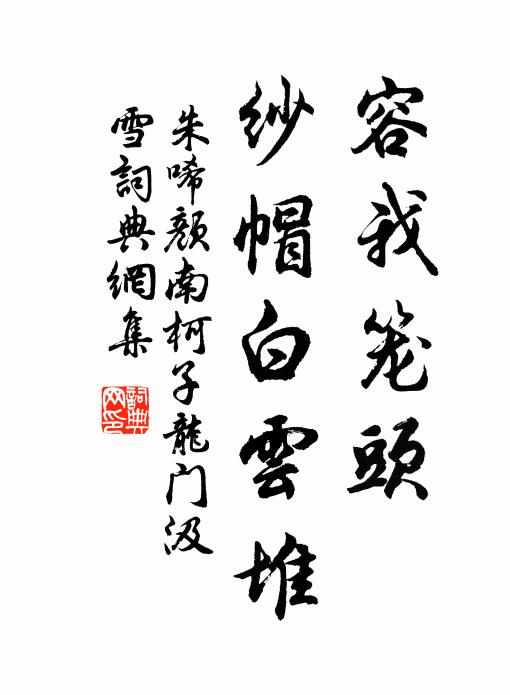 容我笼頭
纱帽白雲堆
朱唏颜南柯子龍门汲
雪詞典網集
詞典
网印